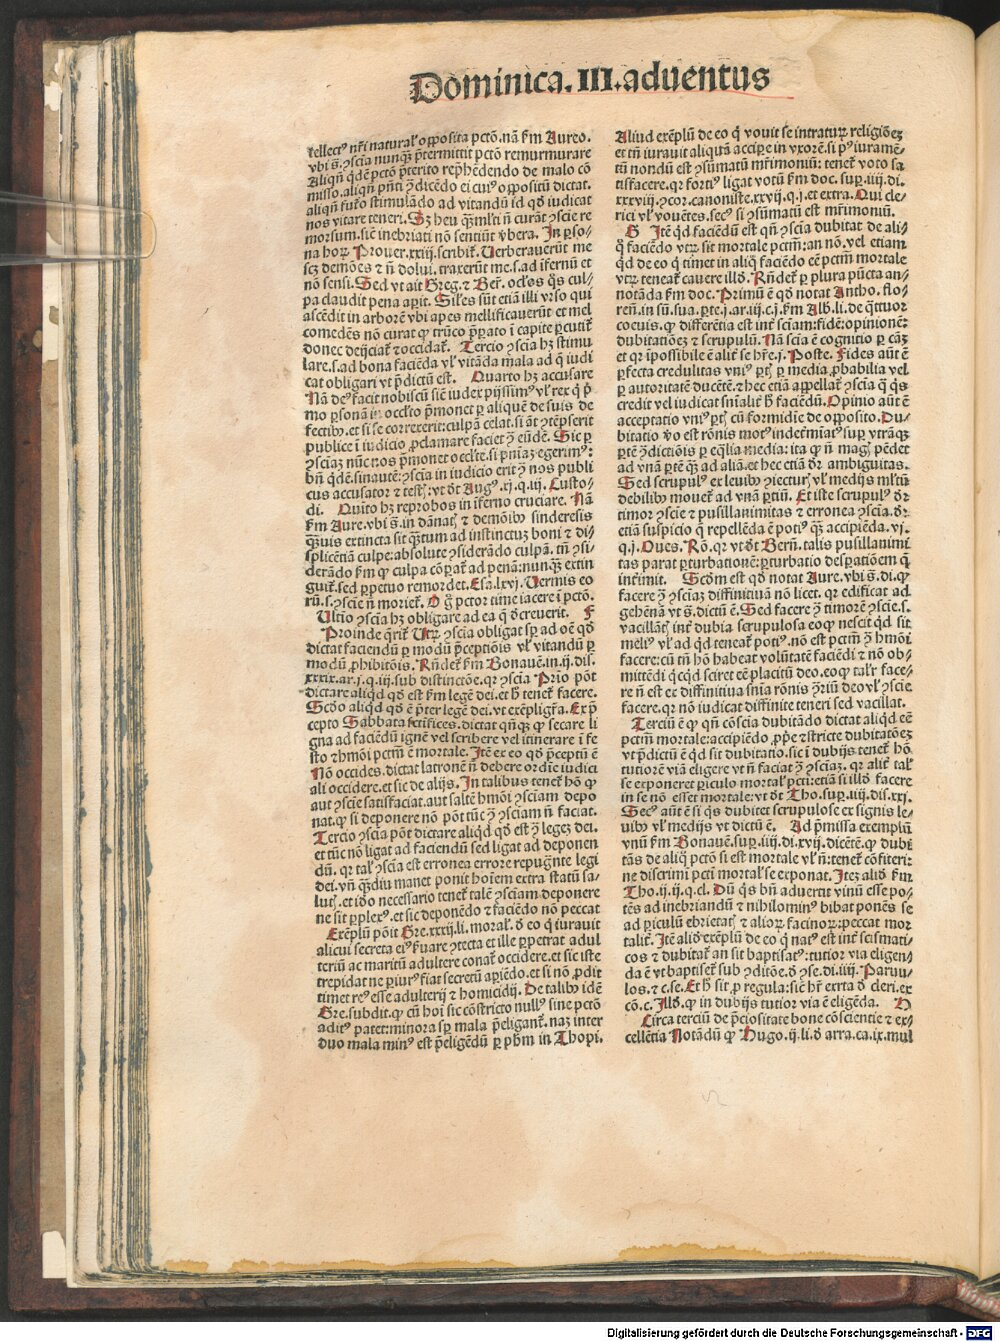 Dominica.III.aduentus
tellectꝰ nr̄i natural' opposita pctō.nā ẜm Aureo.
vbi s̄.ꝯscia nunqꝫ p̄termittit pctō remurmurare
Aliqn̄ qdē pctō p̄terito rep̄hēdendo de malo cō
misso.aliqn̄ pn̄ti ꝯdicēdo ei cuiꝰ oppositū dictat.
aliqn̄ futo stimulādo ad vitandū id qd̓ iudicat
nos vitare teneri. Sꝫ heu qꝫml'ti n̄ curāt ꝯscie re
morsum.sic̄ inebriati nō sentiūt v̄bera. In ꝑso/
na hoꝝ Prouer.xxiij.scribit̄. Uerberauerūt me
scꝫ demōes ⁊ n̄ dolui.traxerūt me.s.ad īfernū et
nō sensi. Sed vt ait Greg.⁊ Ber̄. ocl'os q̄s cul/
pa claudit pena aꝑit. Sil'es sūt etiā illi vrso qui
ascēdit in arborē vbi apes mellificauerūt et mel
comedēs nō curat ꝙ trūco p̄parato ī capite ꝑcutit̄
donec deijciat̄ ⁊ occidat̄. Tercio ꝯscia hꝫ stimu
lare.s.ad bona faciēda vl' vitāda mala ad q̄ iudi
cat obligari vt p̄dictū est. Quarto hꝫ accusare
Nā deꝰ facit nobiscū sic̄ iudex pijssimꝰ vl' rex q̄ p̄
mo ꝑsonā in occl'to p̄monet ꝑ aliquē de suis de
fectibꝰ.et si se correxerit:culpā celat.si āt ꝯtēpserit
publice ī iudicio ꝓclamare faciet ꝯ eūdē. Sic ꝑ
ꝯsciaꝫ nūc nos p̄monet occl'te.si pn̄iaꝫ egerimꝰ:
bn̄ qdē.sinautē:ꝯscia in iudicio erit ꝯ nos publi
cus accusator ⁊ testꝭ:vt dt̄ Augꝰ.xj.q.iij. Custo/
di. Quīto hꝫ reprobos in īferno cruciare. Nā
ẜm Aure.vbi s̄.in dānatꝭ ⁊ demōibꝰ sinderesis
qꝫuis extincta sit qꝫtum ad instinctuꝫ boni ⁊ di/
splicētiā culpe:absolute ꝯsiderādo culpā. tn̄ ꝯsi/
derādo ẜm ꝙ culpa cōꝑat̄ ad penā:nunqꝫ extin
guit̄.sed ꝑpetuo remordet.Esa.lxvj. Uermis eo
rū.s.ꝯscie n̄ moriet̄. O g̊ pctor time iacere ī pctō.
Ultīo ꝯscia hꝫ obligare ad ea q̄ d̓creuerit. F
Proinde q̄rit̄ Utꝝ ꝯscia obligat sꝑ ad oē qd̓
dictat faciendū ꝑ modū p̄ceptiōis vl' vitandū ꝑ
modū ꝓhibitōis. Rn̄det̄ ẜm Bonauē.in.ij.dis.
xxxix.ar.j.q.iij.sub distinctōe.qꝛ ꝯscia Prio pōt
dictare aliqd qd̓ est ẜm legē dei.et h̄ tenet̄ facere.
Scd̓o aliqd qd̓ ē p̄ter legē dei.vt exēpligr̄a. Ex p̄
cepto Sabbata sctifices.dictat qn̄qꝫ ꝙ secare li
gna ad faciēdū ignē vel scribere vel itinerare ī fe
sto ⁊ hmōi pctm̄ ē mortale. Itē ex eo qd̓ p̄ceptū ē
Nō occides.dictat latronē n̄ debere ordīe iudici
ali occidere.et sic de alijs. In talibus tenet̄ hō ꝙ
aut ꝯscie satisfaciat.aut saltē hmōi ꝯsciam depo
nat.ꝙ si deponere nō pōt tūc ꝯ ꝯsciam n̄ faciat.
Tercio ꝯscia pōt dictare aliqd qd̓ est ꝯ legeꝫ dei.
et tūc nō ligat ad faciendū sed ligat ad deponen
dū. qꝛ tal' ꝯscia est erronea errore repugn̄te legi
dei.vn̄ qꝫdiu manet ponit hoīem extra statū sa/
lutꝭ.et id̓o necessario tenet̄ talē ꝯsciam deponere
ne sit ꝑplexꝰ.et sic deponēdo ⁊ faciēdo nō peccat
Exēplū pōit Gre.xxxij.li.moral'. d̓ eo q̄ iurauit
alicui secreta eiꝰ ẜuare ꝯtecta et ille ꝑpetrat adul
teriū ac maritū adultere conat̄ occidere.et sic iste
trepidat ne ꝑiurꝰ fiat secretū aꝑiēdo.et si nō ꝓdit
timet reꝰ esse adulterij ⁊ homicidij. De talibꝰ idē
Gre.subdit.ꝙ cū hoī sic cōstricto nullꝰ sine pctō
aditꝰ patet:minora sꝑ mala p̄eligant̄.naꝫ inter
duo mala minꝰ est p̄eligēdū ꝑ ph̄m in Thopi.
Aliud exēplū de eo q̄ vouit se intraturꝝ religiōeꝫ
et tn̄ iurauit aliquā accipe in vxorē.si pꝰ iuramē/
tū nondū est ꝯsūmatū mr̄imoniū: tenet̄ voto sa
tisfacere.qꝛ fortiꝰ ligat votū ẜm doc. suꝑ.iiij.di.
xxxviij.ꝯcor.canoniste.xxvij.q.j.et extra.Qui cle/
rici vl' vouētes.secꝰ si ꝯsūmatū est mr̄imoniū.
G Itē qd faciēdū est qn̄ ꝯscia dubitat de ali/
q̊ faciēdo vtꝝ sit mortale pctm̄:an nō.vel etiam
qd de eo q̄ timet in aliq̊ faciēdo eē pctm̄ mortale
vtꝝ teneat̄ cauere illd̓. Rn̄det̄ ꝑ plura pūcta an/
notāda ẜm doc. Primū ē qd̓ notat Antho. flo/
ren̄.in sū.sua.ꝑte.j.ar.iij.c.j.ẜm Alb̄.li.de q̄ttuor
coeuis.ꝙ differētia est int̄ sciam:fidē:opinionē:
dubitatiōeꝫ ⁊ scrupulū. Nā scia ē cognitio ꝑ cāꝫ
et qꝛ īpossibile ē alit̄ se hr̄e.j. Poste. Fides aūt ē
ꝑfecta credulitas vniꝰ ꝑtꝭ ꝑ media ꝓbabilia vel
ꝑ autoritatē ducētē.⁊ hec etiā appellat̄ ꝯscia q̄ q̄s
credit vel iudicat sn̄ialit̄ h̄ faciēdū. Opinio aūt ē
acceptatio vniꝰ ꝑtꝭ cū formidīe de opposito. Du/
bitatio v̓o est rōnis motꝰ indet̄mīatꝰ suꝑ vtrāqꝫ
ꝑtē ꝯdictiōis ꝑ eq̄lia media: ita ꝙ n̄ magꝭ pēdet
ad vnā ꝑtē qꝫ ad aliā.et hec etiā dr̄ ambiguitas.
Sed scrupulꝰ ex leuibꝰ ꝯiecturꝭ vl' medijs ml'tū
debilibꝰ mouet̄ ad vnā ꝑtiū. Et iste scrupulꝰ dr̄
timor ꝯscie ⁊ pusillanimitas ⁊ erronea ꝯscia.dr̄
etiā suspicio q̄ repellēda ē potiꝰ qꝫ accipiēda.vj.
q.j.Oues. Rō.qꝛ vt dt̄ Bern̄.talis pusillanimi
tas parat ꝑturbationē:ꝑturbatio desꝑatiōem q̄
int̄imit. Scd̓m est qd̓ notat Aure.vbi s̄.di.ꝙ
facere ꝯ ꝯsciaꝫ diffinitiuā nō licet. qꝛ edificat ad
gehēnā vt s̄.dictū ē. Sed facere ꝯ timorē ꝯscie.s.
vacillātꝭ int̄ dubia scrupulosa eoꝙ nescit qd sit
meliꝰ vl' ad qd teneat̄ potiꝰ.nō est pctm̄ ꝯ hmōi
facere:cū tn̄ hō habeat volūtatē faciēdi ⁊ nō ob/
mittēdi q̊cqd sciret eē placitū deo.eoꝙ talr̄ face/
re n̄ est ex diffinitiua sn̄ia rōnis ꝯriū deo vl' ꝯscie
facere.qꝛ nō iudicat diffinite teneri sed vacillat.
Terciū ē ꝙ qn̄ cōscia dubitādo dictat aliqd eē
pctm̄ mortale:accipiēdo ꝓpe ⁊ stricte dubitatōeꝫ
vt p̄dictū ē qd sit dubitatio.sic ī dubijs tenet̄ hō
tutiorē viā eligere vt n̄ faciat ꝯ ꝯsciaꝫ. qꝛ alit̄ tal'
se exponeret ꝑiculo mortal' pcti:etiā si illd̓ facere
in se nō esset mortale:vt dt̄ Tho.suꝑ.iiij.dis.xxj.
Secꝰ aūt ē si q̄s dubitet scrupulose ex signis le/
uibꝰ vl' medijs vt dictū ē. Ad p̄missa exemplū
vnū ẜm Bonauē.suꝑ.iiij.di.xvij.dicētē.ꝙ dubi
tās de aliq̊ pctō si est mortale vl' n̄:tenet̄ cōfiteri:
ne discrimī pcti mortal' se exponat. Iteꝫ aliō ẜm
Tho.ij.ij.q.cl. Dū q̄s bn̄ aduertit vinū esse po/
tēs ad inebriandū ⁊ nihilominꝰ bibat ponēs se
ad ꝑiculū ebrietatꝭ ⁊ alioꝝ facinoꝝ:peccat mor
talit̄. Itē aliō exēplū de eo q̄ natꝰ est int̄ scismati/
cos ⁊ dubitat̄ an sit baptisatꝰ:tutior via eligen/
da ē vt baptiset̄ sub ꝯditōe.d̓ ꝯse.di.iiij. Paruu/
los.⁊ c.se. Et h̄ sit ꝓ regula:sic̄ hr̄ exrta d̓ cleri.ex
cō.c.Illd̓.ꝙ in dubijs tutior via ē eligēda. H
Circa terciū de p̄ciositate bone cōscientie ⁊ ex/
cellētia Notādū ꝙ Hugo.ij.li.d̓ arra.ca.ix.mul
Digitalisierung gefördert durch die Deutsche Forschungsgemeinschaft - DFG